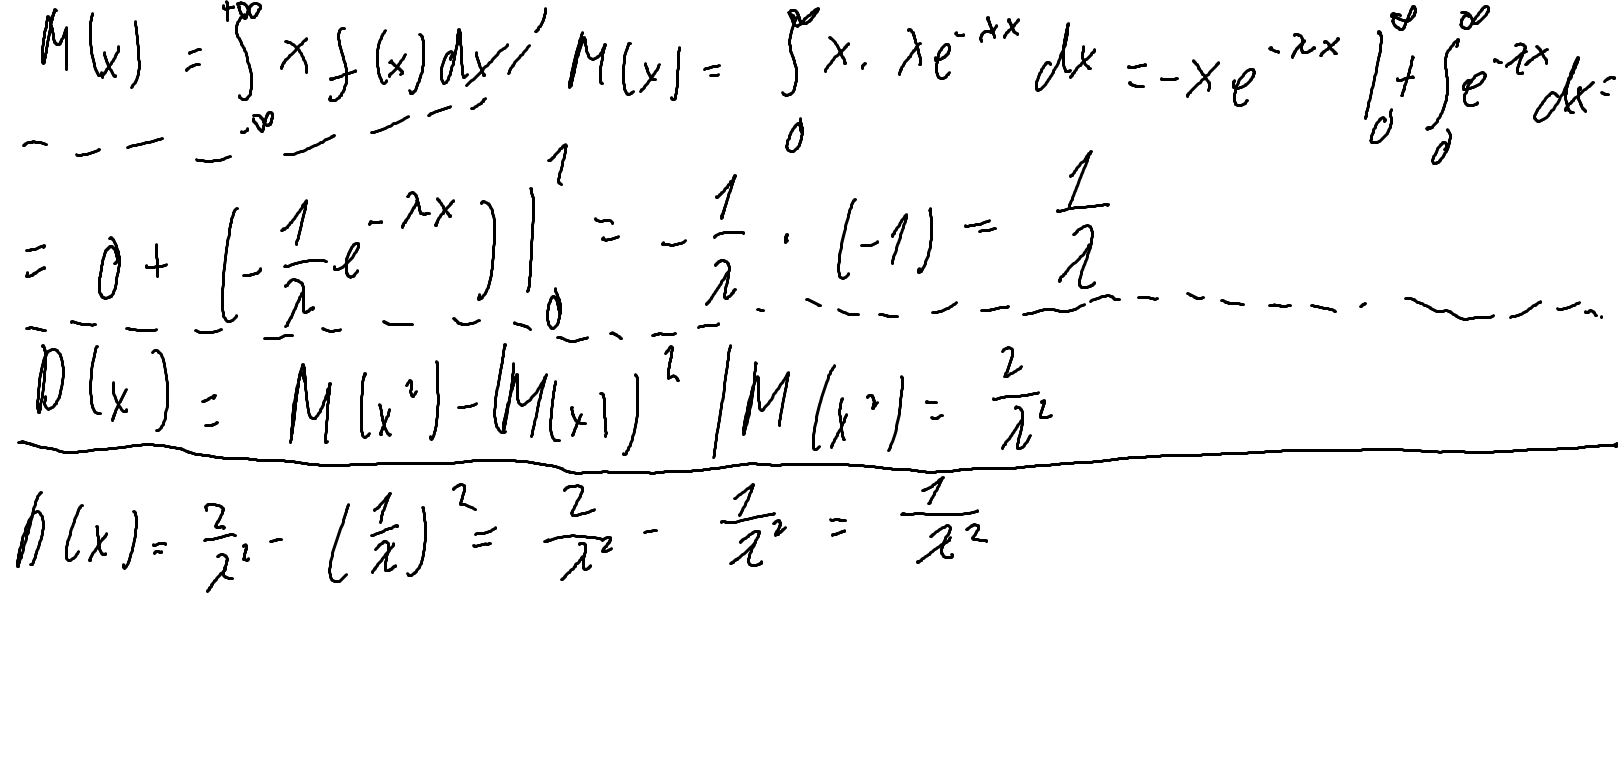 M(x) = ∫_{-∞}^{+∞} x f(x) dx, M(x) = ∫_0^∞ x · λe^{-λx} dx = -x e^{-λx} |_0^∞ + ∫_0^∞ e^{-λx} dx =
= 0 + (-1/λ e^{-λx}) |_0^1 = -1/λ · (-1) = 1/λ
D(x) = M(x²) - (M(x))² | M(x²) = 2/λ²
D(x) = 2/λ² - (1/λ)² = 2/λ² - 1/λ² = 1/λ²